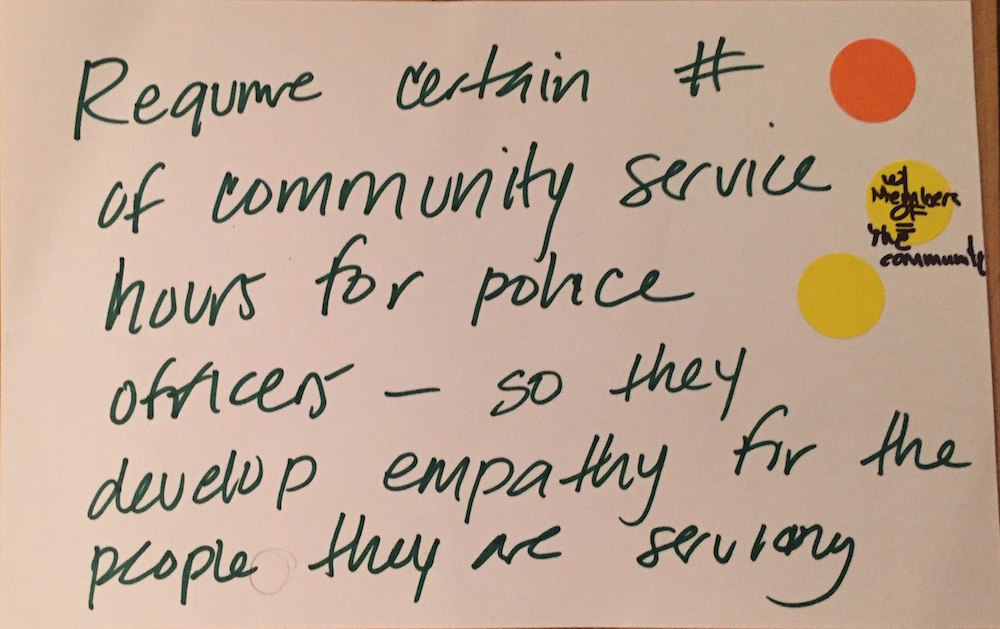 Require certain #
of community service
hours for police
officers – so they
develop empathy for the
people they are serving
w/
Members
of
the
community